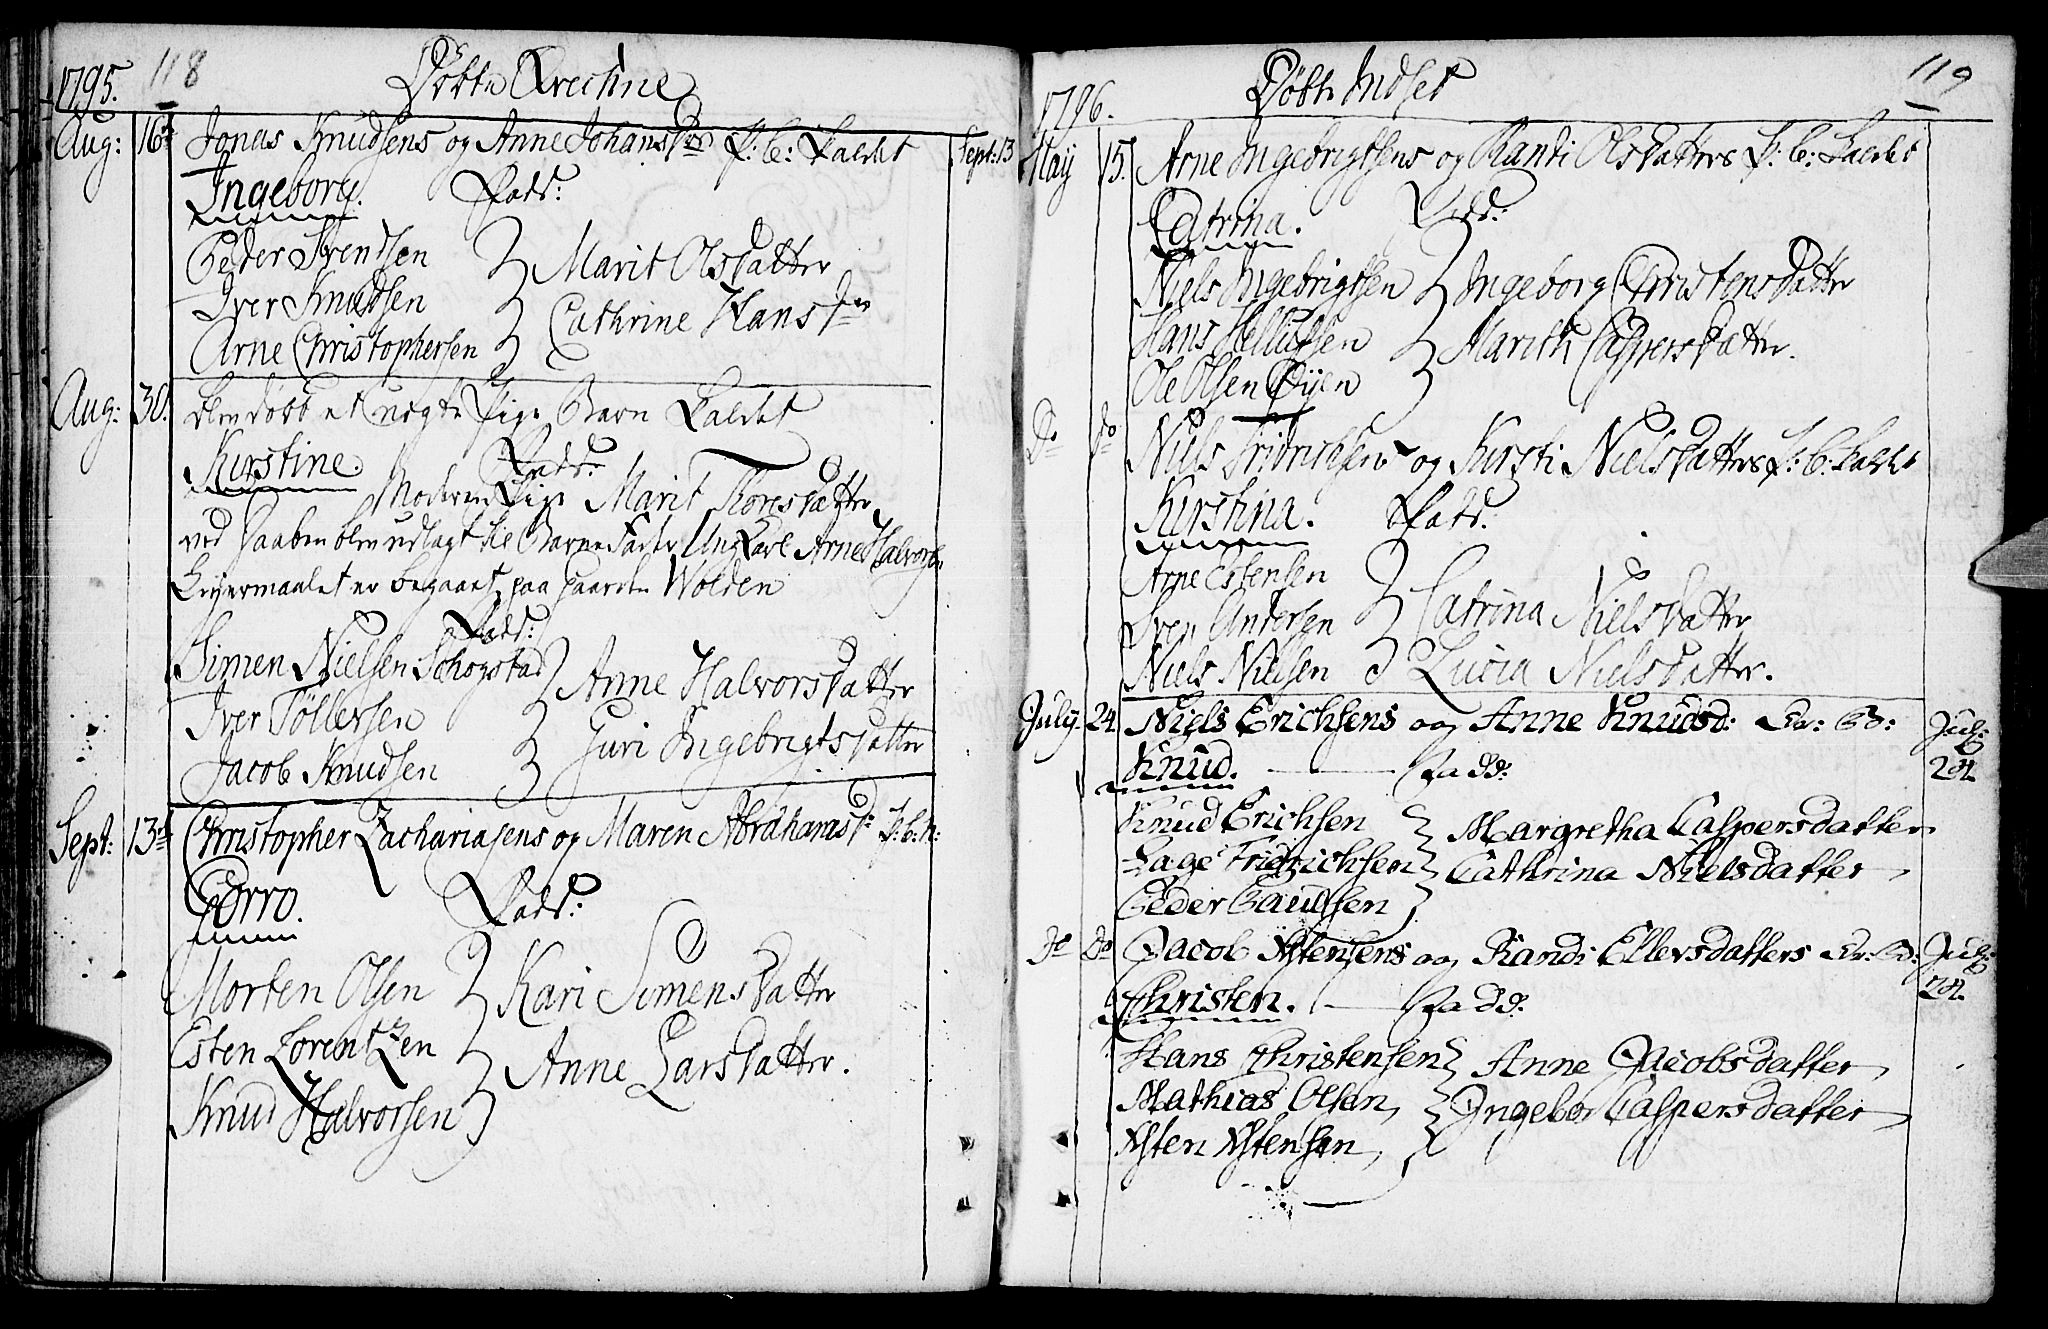 1795. 118 Døbte Qvechne
Aug: 16de Jonas Knudsens og Anne Johansd:r P: b: Kaldet Sept: 13
Ingeborg. Fadd:
Peder Svendsen Marit Olsdatter
Iver Knudsen Cathrine Hansd:r
Arne Christophersen
Aug: 30. blev døbt et uægte Pige Barn Kaldet
Kirstine. Fadd:
Moderen Pige Marit Toresdatter
ved Daaben blev udlagt til Barne Fader Ung Karl Arne Halvorsen
Leiermaalet er begaaet paa gaarden Wolden
Fadd:
Simen Nielsen Schogstad Anne Halvorsdatter
Iver Töllefsen Guri Ingebrigtsdatter
Jacob Knudsen
Sept: 13de Christopher Zachariasens og Maren Abrahamsd: P: b: n:
Gorro. Fadd:
Morten Olsen Kari Simensdatter
Esten Lorentzen Anne Larsdatter.
Knud Halvorsen
1796. Døbte Indset 119
May 15. Arne Ingebrigtsens og Randi Olsdatters P: b: Kaldet
Catrina. Fadd:
Niels Ingebrigtsen Ingeborg Christensdatter
Hans Kellufsen Marith Caspersdatter.
Ole Olsen Øyen
Do do Niels Fridrichsens og Kirsti Nielsdatters P: b: Kaldet
Kirstina. Fadd:
Arne Estensen
Sven Andersen Catrina Nielsdatter
Niels Nielsen Lucia Nielsdatter.
July. 24. Niels Erichsens og Anne Knudsd: Dr: B: July:
Knud. Fadd: 24.
Knud Erichsen Margretha Caspersdatter
Lage Fridrichsen Cathrina Nielsdatter
Peder Paulsen
Do Do Jacob Estensens og Randi Ellevsdatters Dr: B: July:
Christen. Fadd: 24.
Hans Christensen Anne Jacobsdatter
Mathias Olsen, Ingebor Caspersdatter
Esten Estensen,